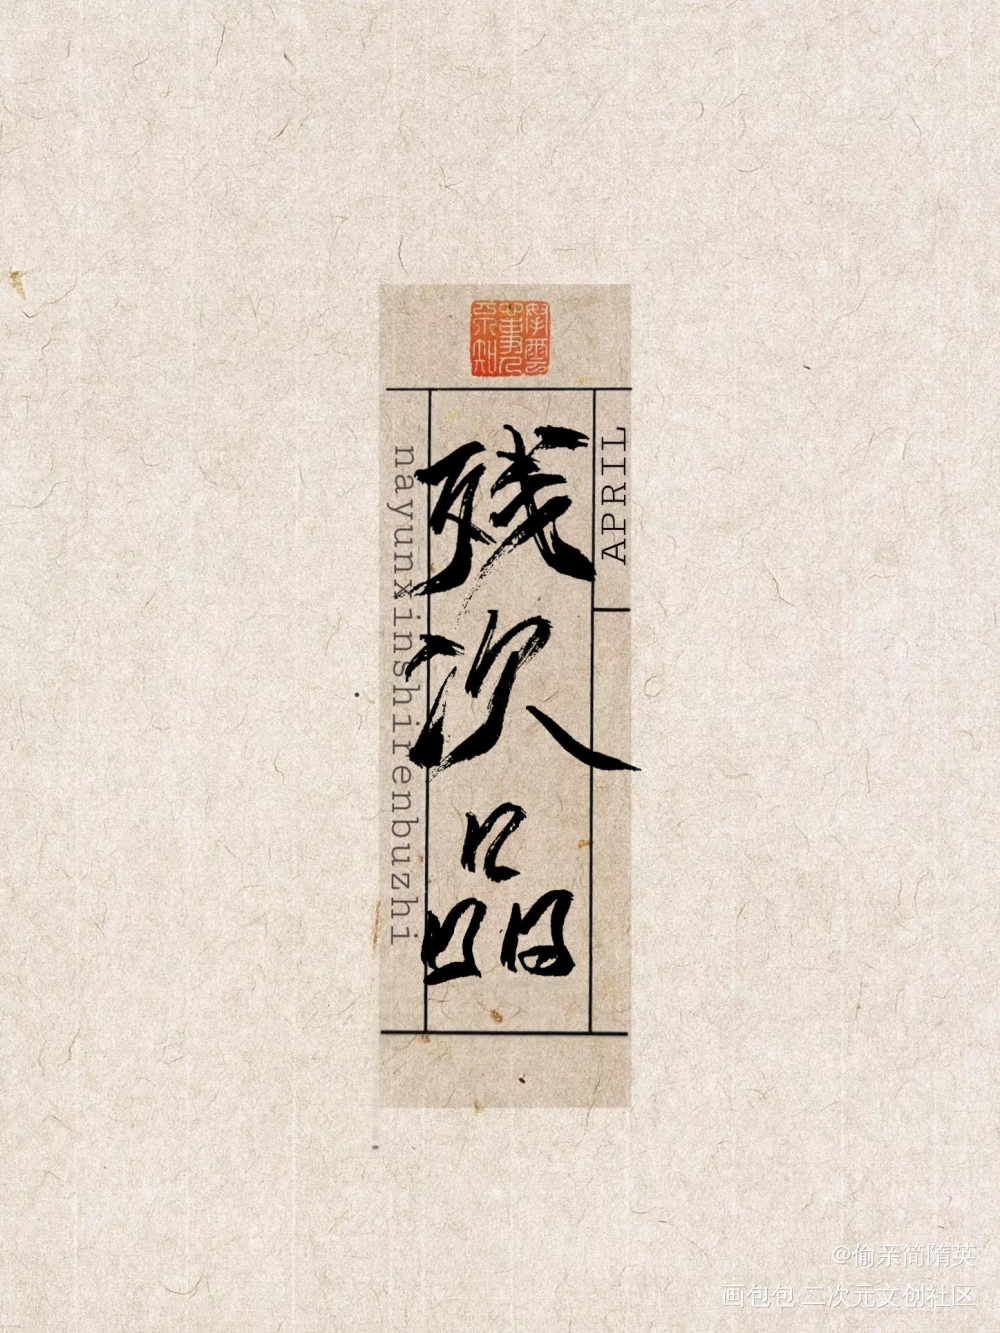 拏雲
心事人
不知
残次品
APRIL
nayunxinshirenbuzhi
@偷亲简隋英
画包包 二次元文创社区